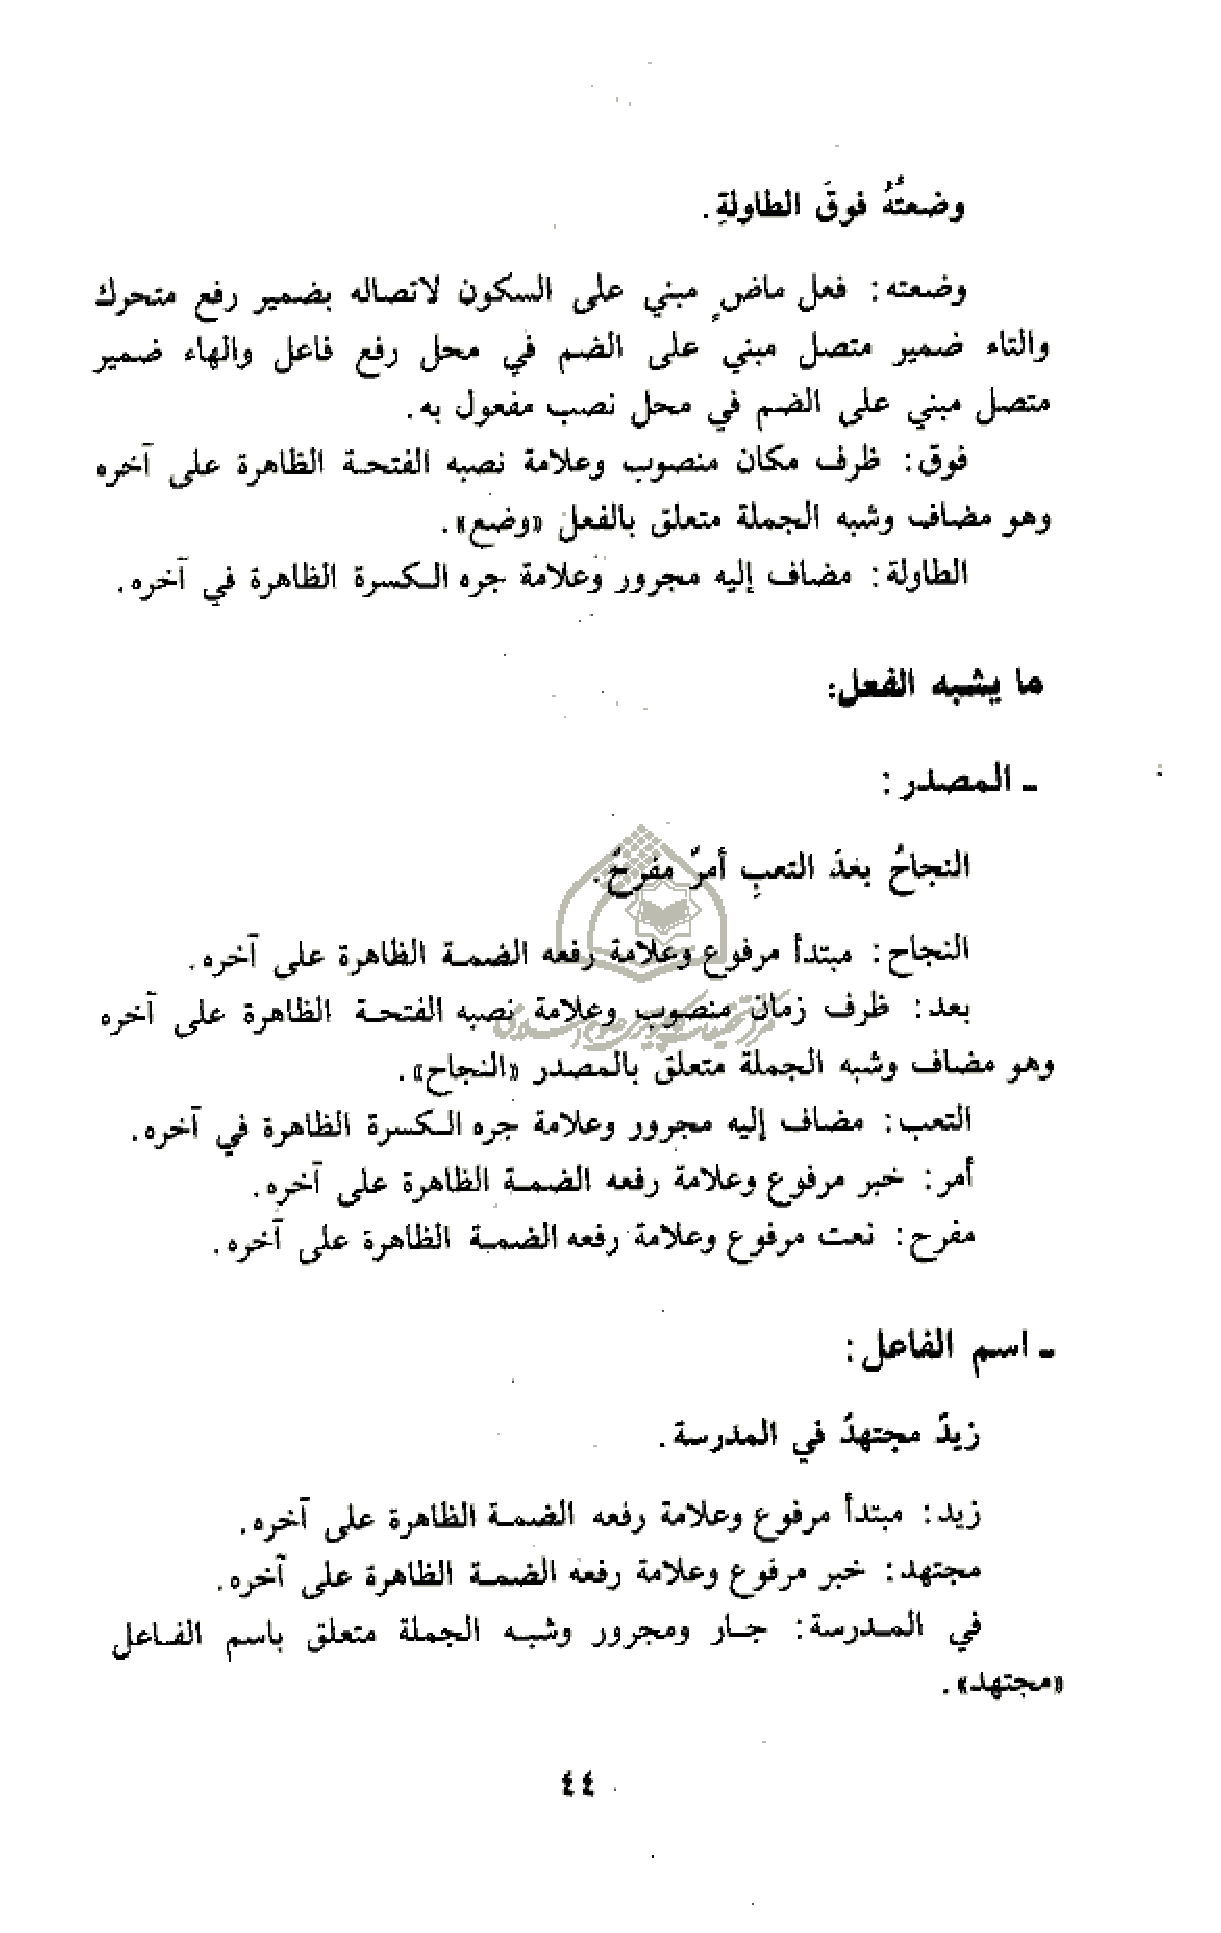 وضعتُهُ فوقَ الطاولةِ.
وضعته: فعل ماضٍ مبني على السكون لاتصاله بضمير رفع متحرك
والتاء ضمير متصل مبني على الضم في محل رفع فاعل والهاء ضمير
متصل مبني على الضم في محل نصب مفعول به.
فوق: ظرف مكان منصوب وعلامة نصبه الفتحة الظاهرة على آخره
وهو مضاف وشبه الجملة متعلق بالفعل «وضع».
الطاولة: مضاف إليه مجرور وعلامة جره الكسرة الظاهرة في آخره.
ما يشبه الفعل:
ـ المصدر:
النجاحُ بعدَ التعبِ أمرٌ مفرحٌ.
النجاح: مبتدأ مرفوع وعلامة رفعه الضمة الظاهرة على آخره.
بعد: ظرف زمان منصوب وعلامة نصبه الفتحة الظاهرة على آخره
وهو مضاف وشبه الجملة متعلق بالمصدر «النجاح».
التعب: مضاف إليه مجرور وعلامة جره الكسرة الظاهرة في آخره.
أمر: خبر مرفوع وعلامة رفعه الضمة الظاهرة على آخره.
مفرح: نعت مرفوع وعلامة رفعه الضمة الظاهرة على آخره.
ـ اسم الفاعل:
زيدٌ مجتهدٌ في المدرسة.
زيد: مبتدأ مرفوع وعلامة رفعه الضمة الظاهرة على آخره.
مجتهد: خبر مرفوع وعلامة رفعه الضمة الظاهرة على آخره.
في المدرسة: جار ومجرور وشبه الجملة متعلق باسم الفاعل
«مجتهد».
٤٤